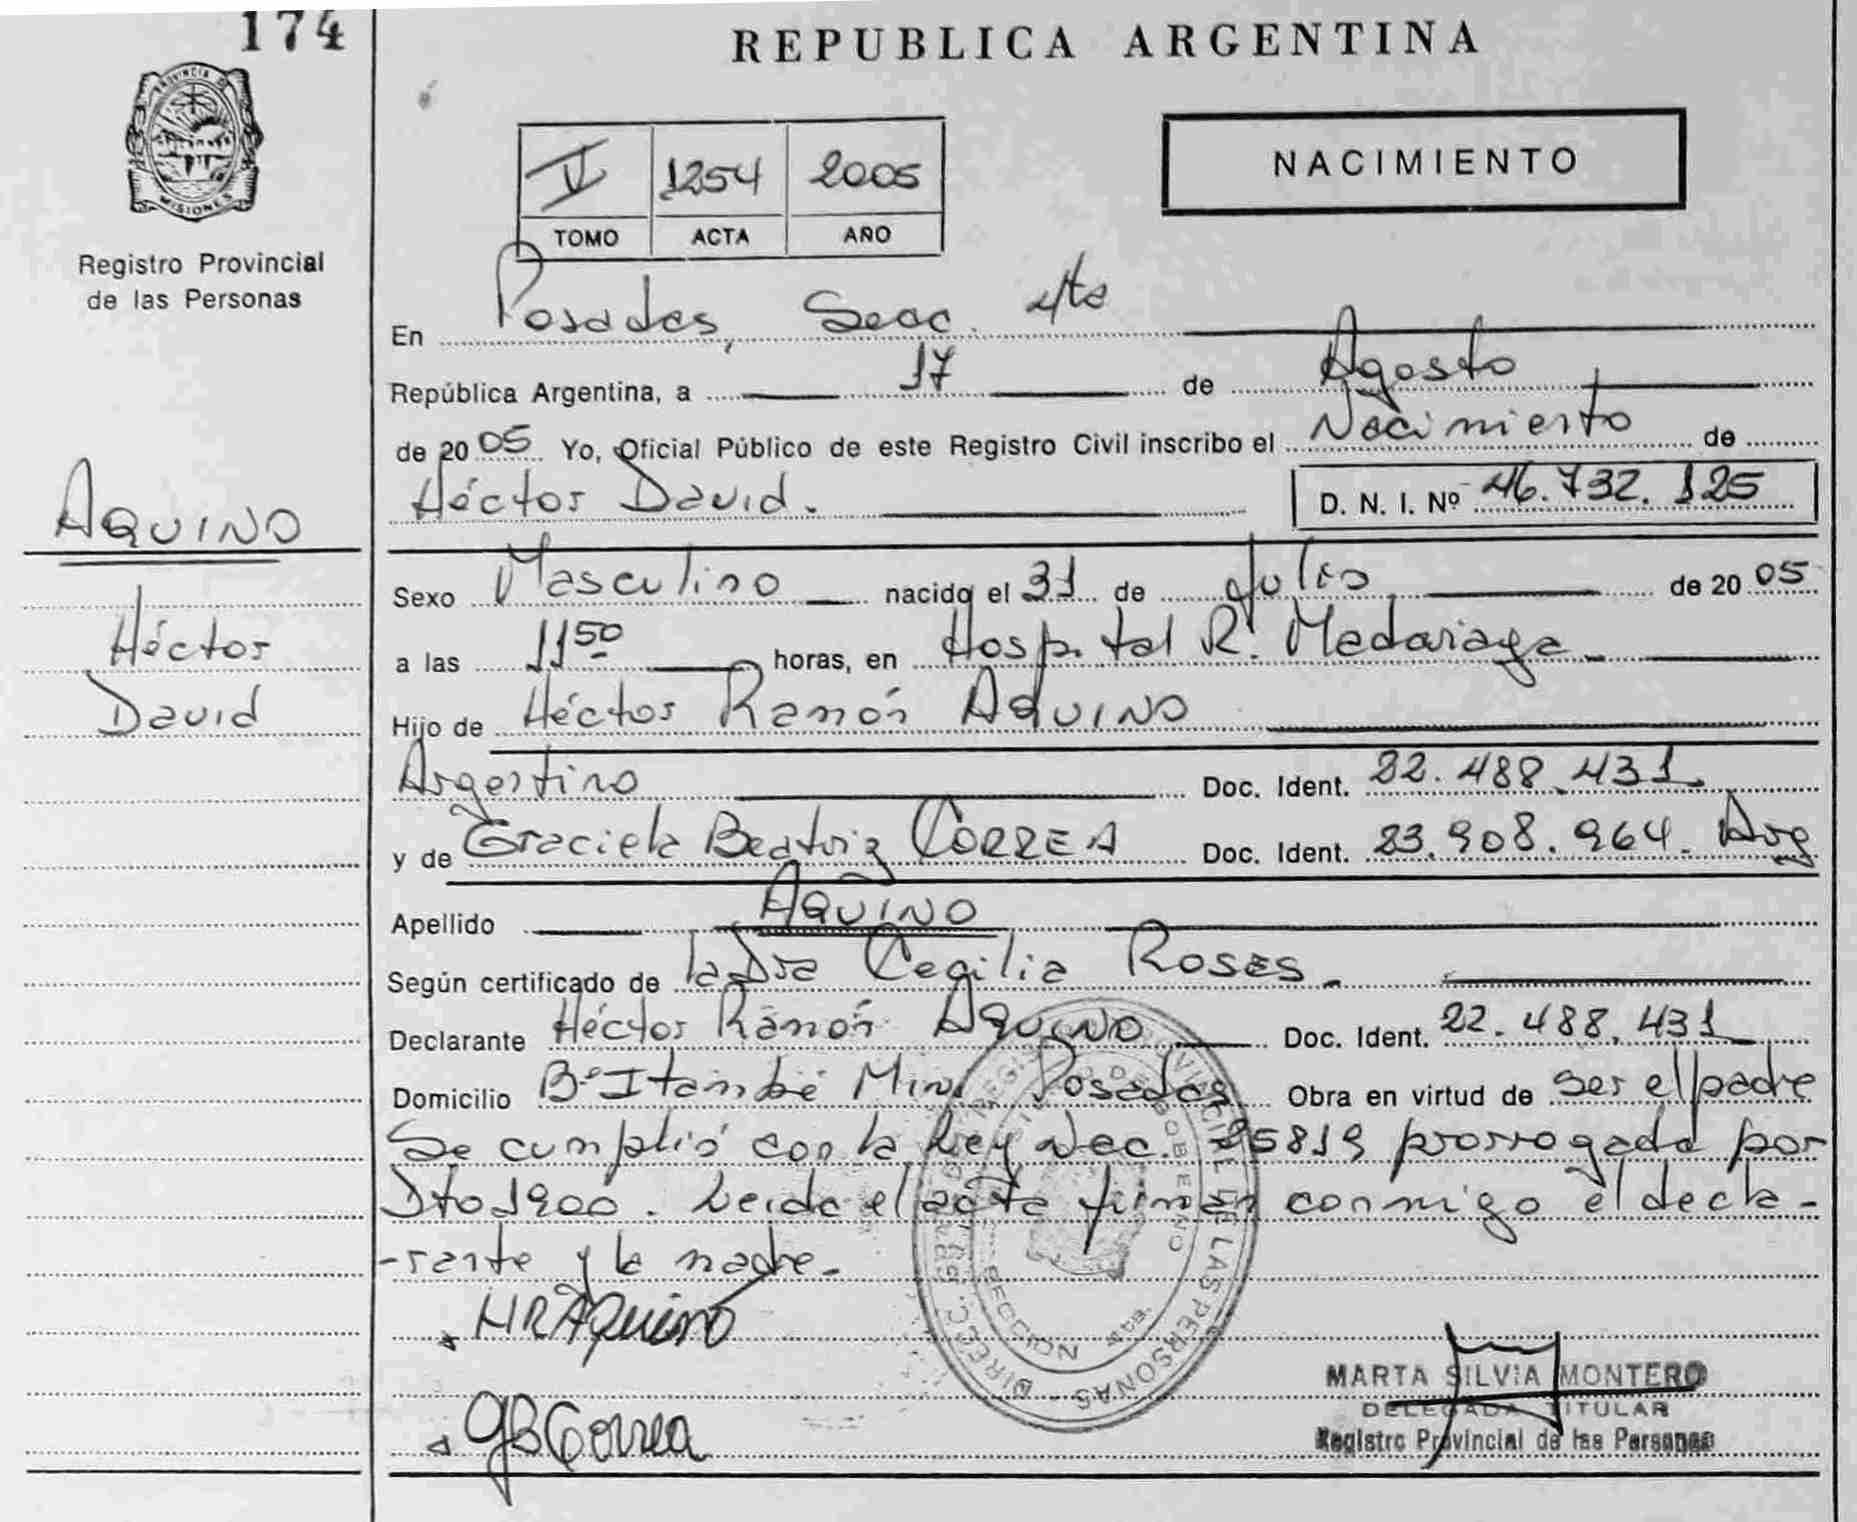 174
REPUBLICA ARGENTINA
PROVINCIA DE
MISIONES
Registro Provincial
de las Personas
V 1254 2005
TOMO ACTA AÑO
NACIMIENTO
En Posadas, Secc. 4ta
República Argentina, a 17 de Agosto
de 2005 Yo, Oficial Público de este Registro Civil inscribo el Nacimiento de
Héctor David. D. N. I. Nº 46.732.125
AQUINO
Héctor
David
Sexo Masculino nacido el 31 de Julio de 2005
a las 11 50 horas, en Hospital R. Madariaga
Hijo de Héctor Ramón AQUINO
Argentino Doc. Ident. 22.488.431.
y de Graciela Beatriz CORREA Doc. Ident. 23.908.964. Arg
Apellido AQUINO
Según certificado de la Dra Cecilia Roses.
Declarante Héctor Ramón AQUINO Doc. Ident. 22.488.431
Domicilio Bº Itambé Miní Posadas Obra en virtud de ser el padre
Se cumplió con la Ley Nac. 25819 prorrogada por
Dto 1900. Leida el acta firman conmigo el decla-
-rante y la madre.
HRAquino
GBCorrea
MARTA SILVIA MONTERO
DELEGADA TITULAR
Registro Provincial de las Personas